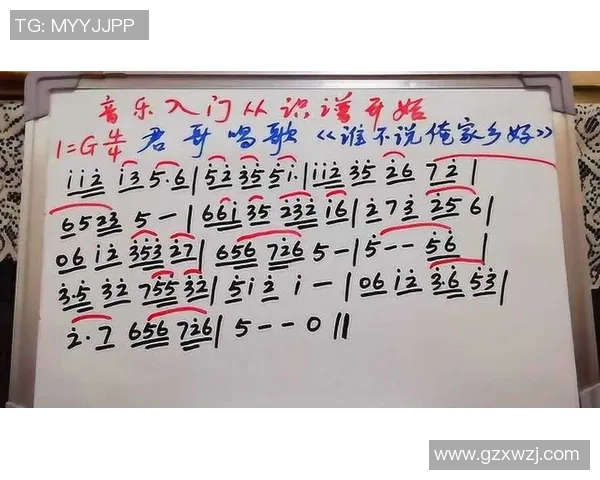 TG: MYYJJPP
音乐入门从识谱开始
1=G 4/4 君哥唱歌《谁不说俺家乡好》
i i 2̇ i 3̇ 5·6 | 5̇2̇ 3̇5̇ 5̇i· | i i 2̇ 3̇5̇ 2̇6 7 2̇ |
6 5 2̇3̇ 5 - | 6 6 i 3̇5̇ 2̇3̇2̇ i6 | 2̇ 7 2̇ 2̇5 6 |
0 6 i 2̇ 3̇5̇3̇ 2̇7 | 6 5 6 7 2̇ 6 5 - | 5̇ - - 5̇6̇ |
3̇·5̇ 3̇2̇ 7 5 5 3̇2̇ | 5 i 2̇ i - | 0 6 i 2̇ 3̇·6̇ 5̇3̇ |
2̇·7 6 5 6 7 2̇ 6 | 5 - - 0 ‖
www.gzxwzj.com